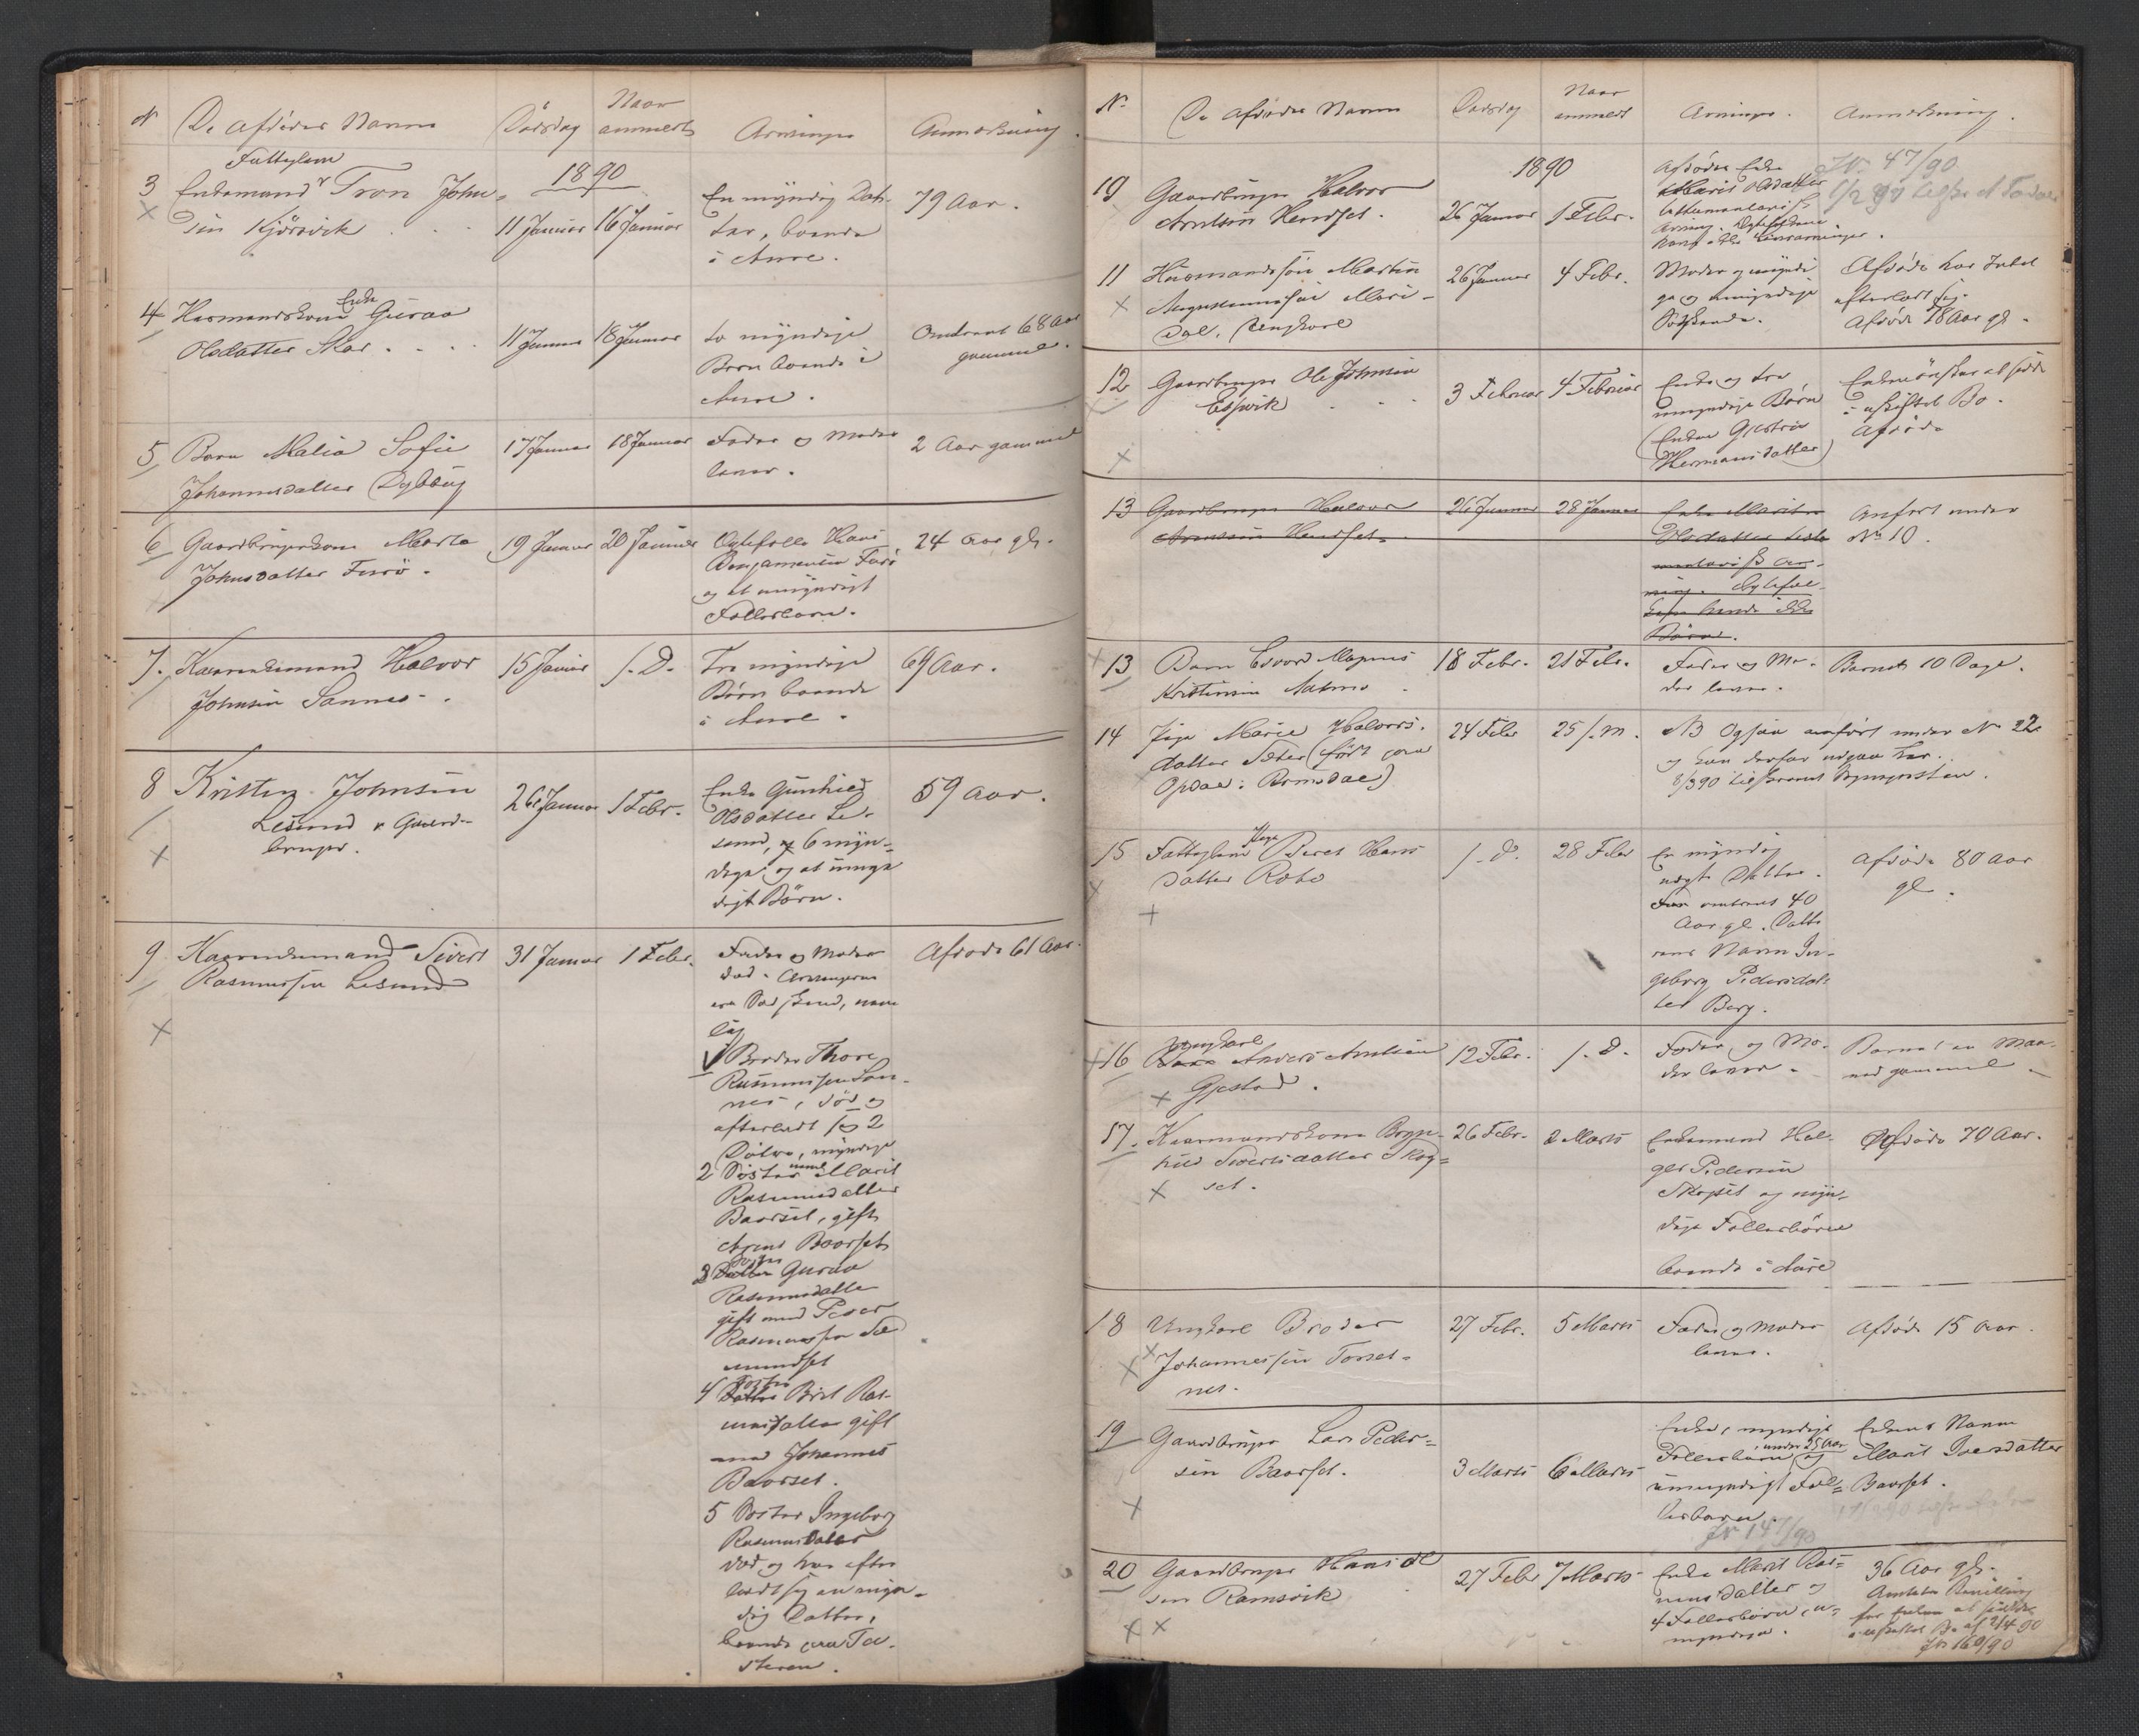 N De Afdødes Navne Dødsdag Naar anmeldt Arvinger Anmærkning
1890
3 Fattiglem
Enkemand Tron John-
sen Kjørsvik 11 Januar 16 Januar En myndig Dat-
ter, boende
i Aure. 79 Aar.
4 Husmandskone Enke Guraa
Olsdatter Skar 11 Januar 18 Januar to myndige
Børn boende i
Aure. Omtrent 68 Aar
gammel.
5 Barn Malia Sofie
Johannesdatter Dybbug 17 Januar 18 Januar Fader og Moder
lever. 2 Aar gammel
6 Gaardbrugerkone Marta
Johnsdatter Furø. 19 Januar 20 Januar Ægtefælle Hans
Benjaminsen Furø
og et umyndigt
Fællesbarn. 24 Aar gl.
7. Kaarenkemand Halvor
Johnsen Sannes 15 Januar s. D. Tre myndige
Børn boende
i Aure. 69 Aar.
8 Kristen Johnsen
Lesund Gaard-
bruger. 26 Januar 1 Febr. Enke Gunhild
Olsdatter Le-
sund, 6 myn-
dige og et umyn-
digt Børn. 59 Aar.
9 Kaarenkemand Sivert
Rasmussen Lesund 31 Januar 1 Febr. Fader og Moder
død. Arvingerne
ere Sødskend, nem
lig
1 Broder Thore
Rasmussen San-
nes, død og
efterladt sig 2
Døtre, myndige
2 Søster Marit
Rasmusdatter
Baarset, gift
Baarset
3 Søster Guraa
Rasmusdatter
gift med Peder
Rasmussen Sæ
mundset
4 Søster Brit Ras-
musdatter gift
med Johannes
Baarset.
5 Søster Ingeborg
Rasmusdatter
død og har efter
ladt sig en myn-
dig Datter,
boende paa Tu-
steren. Afdøde 61 Aar.
No De Afdødes Navne Dødsdag Naar anmeldt Arvinger. Anmærkning.
1890
10 Gaardbruger Halvor
Arntsen Hendset. 26 Januar 1 Febr. Afdødes Enke
Marit Olsdatter
testamentarisk
Arving. Ægtefolkene
havde ikke Livsarvinger. JN. 47/90
11 Husmandssøn Martin
Magnus Mari-
dal, Ungkarl 26 Januar 4 Febr. Moder og myndi
ge og umyndige
Sødskende. Afdøde har Intet
efterladt sig.
Afdøde 18 Aar gl.
12 Gaardbruger Ole Johnsen
Espvik 3 Februar 4 Februar Enke og tre
umyndige Børn
(Enken Gjertru
Hermansdatter) Enken ønsker at sidde
i uskiftet Bo.
Afdøde
13 Gaardbruger Halvor
Arntsen Hendset. 26 Januar 28 Januar Enke Marit
Olsdatter testa
mentarisk Ar-
ving. Ægtefol-
kene havde ikke
Børn. Anført under
No 10.
13 Barn Edvard Magnus
Kristensen Aalmo 18 Febr. 21 Febr. Fader og Mo-
der lever. Barnet 10 Dage.
14 Pige Marie Halvors-
datter Sæter (født paa
Opdal i Romsdal) 24 Febr 25 s. M. NB Ogsaa anført under No 22
og kan derfor udgaa her.
15 Fattiglem Pige Beret Hans
datter Roko s. D. 28 Febr En myndig
uægte Datter
omtrent 40
Aar gl. Datte
rens Navn In-
geborg Pedersdat-
ter Berg. Afdøde 80 Aar
gl.
16 Ungkarl
Anders Arntsen
Gjestad. 12 Febr. s. D. Fader og Mo-
der lever. Barnet en Maa-
ned gammel
17. Kaarmandskone Bryn-
hild Sivertsdatter Skog-
set. 26 Febr. 2 Marts Enkemand Hal-
Pedersen
Skogset og myn-
dige Fællesbørn
boende i Aure Afdøde 70 Aar.
18 Ungkarl Broder
Johannessen Torset-
nes. 27 Febr. 5 Marts Fader og Moder
lever. Afdøde 15 Aar.
19 Gaardbruger Lars Peder-
sen Baarset. 3 Marts 6 Marts Enke, myndige
Fællesbørn under 25 Aar og
umyndigt Fæl-
lesbarn.
JN 147/90 Enkens Navn
Marit Iversdatter
Baarset.
20 Gaardbruger Hans Ol
sen Ramsvik 27 Febr 7 Marts Enke Marit Ras-
musdatter og
4 Fællesbørn, u-
myndige. 36 Aar gl.
Amtets Bevilling
for Enken at sidde
i uskiftet Bo af 2/4 90
JN 160/90